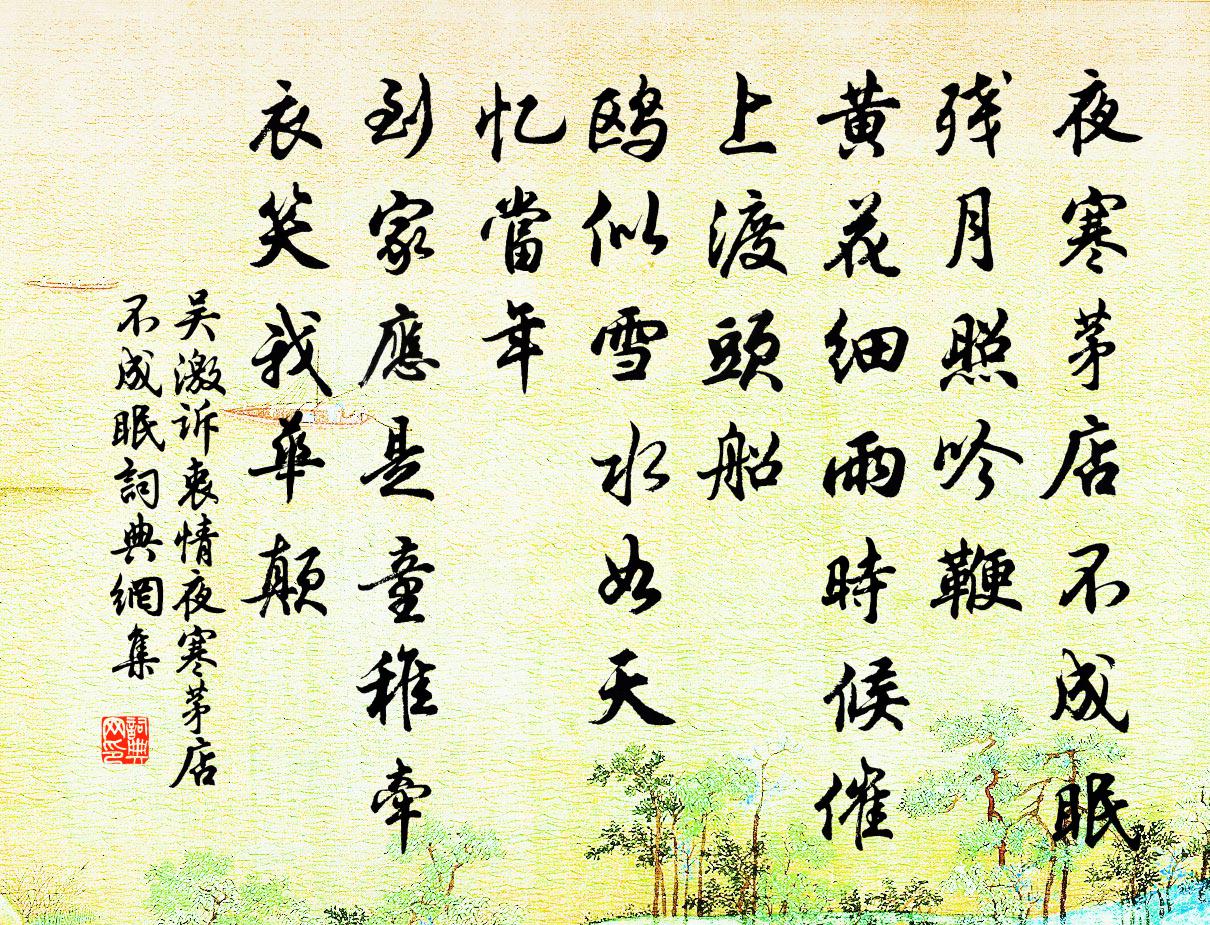 夜寒茅店不成眠
残月照吟鞭
黄花细雨時候催
上渡頭船
鸥似雪水如天
忆當年
到家應是童稚牵
衣笑我華颠
吴激诉衷情夜寒茅店
不成眠詞典網集
詞典
网印